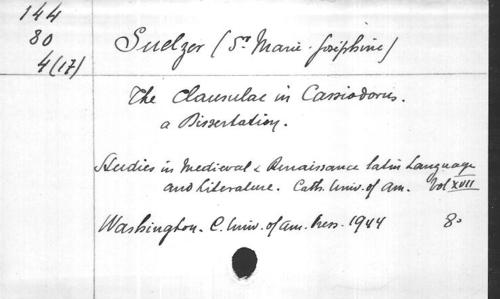 144
80
4(17)
Suelzer (Sr Marie-Joséphine)
The Clausulae in Cassiodorus.
a Dissertation.
Studies in Medieval & Renaissance latin Language
and Literature. Cath. Univ. of Am. Vol XVII
Washington. C. Univ. of Am. Press. 1944 8o